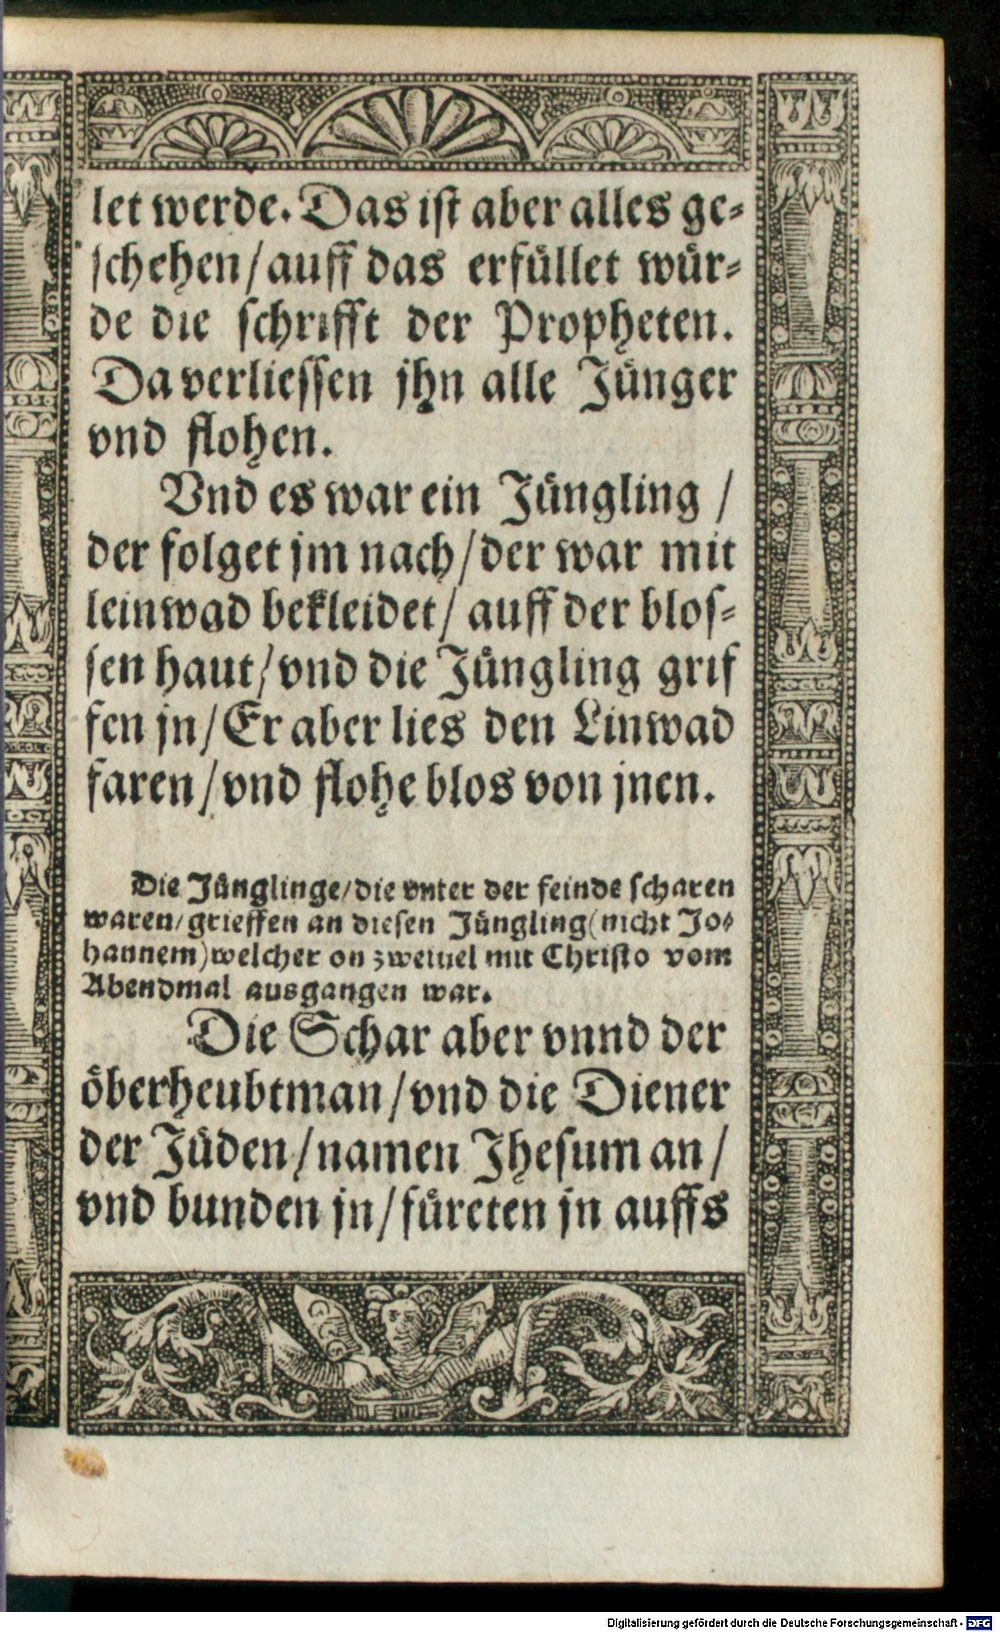 let werde. Das ist aber alles ge-
schehen/auff das erfüllet wür-
de die schrifft der Propheten.
Da verliessen jhn alle Jünger
vnd flohen.
Vnd es war ein Jüngling /
der folget jm nach/der war mit
leinwad bekleidet/ auff der blos-
sen haut/vnd die Jüngling grif
fen jn/Er aber lies den Linwad
faren/vnd flohe blos von jnen.
Die Jünglinge/die vnter der feinde scharen
waren/grieffen an diesen Jüngling(nicht Jo-
hannem)welcher on zweiuel mit Christo vom
Abendmal ausgangen war.
Die Schar aber vnnd der
öberheubtman/vnd die Diener
der Jüden/namen Jhesum an/
vnd bunden jn/füreten jn auffs
Digitalisierung gefördert durch die Deutsche Forschungsgemeinschaft - DFG